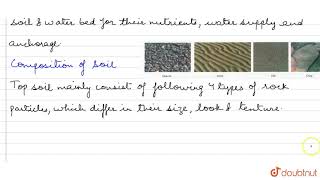 soil & water bed for their nutrients, water supply and
anchorage.
Composition of Soil
Top soil mainly consist of following 4 types of rock
particles, which differ in their size, look & texture.
doubtnut